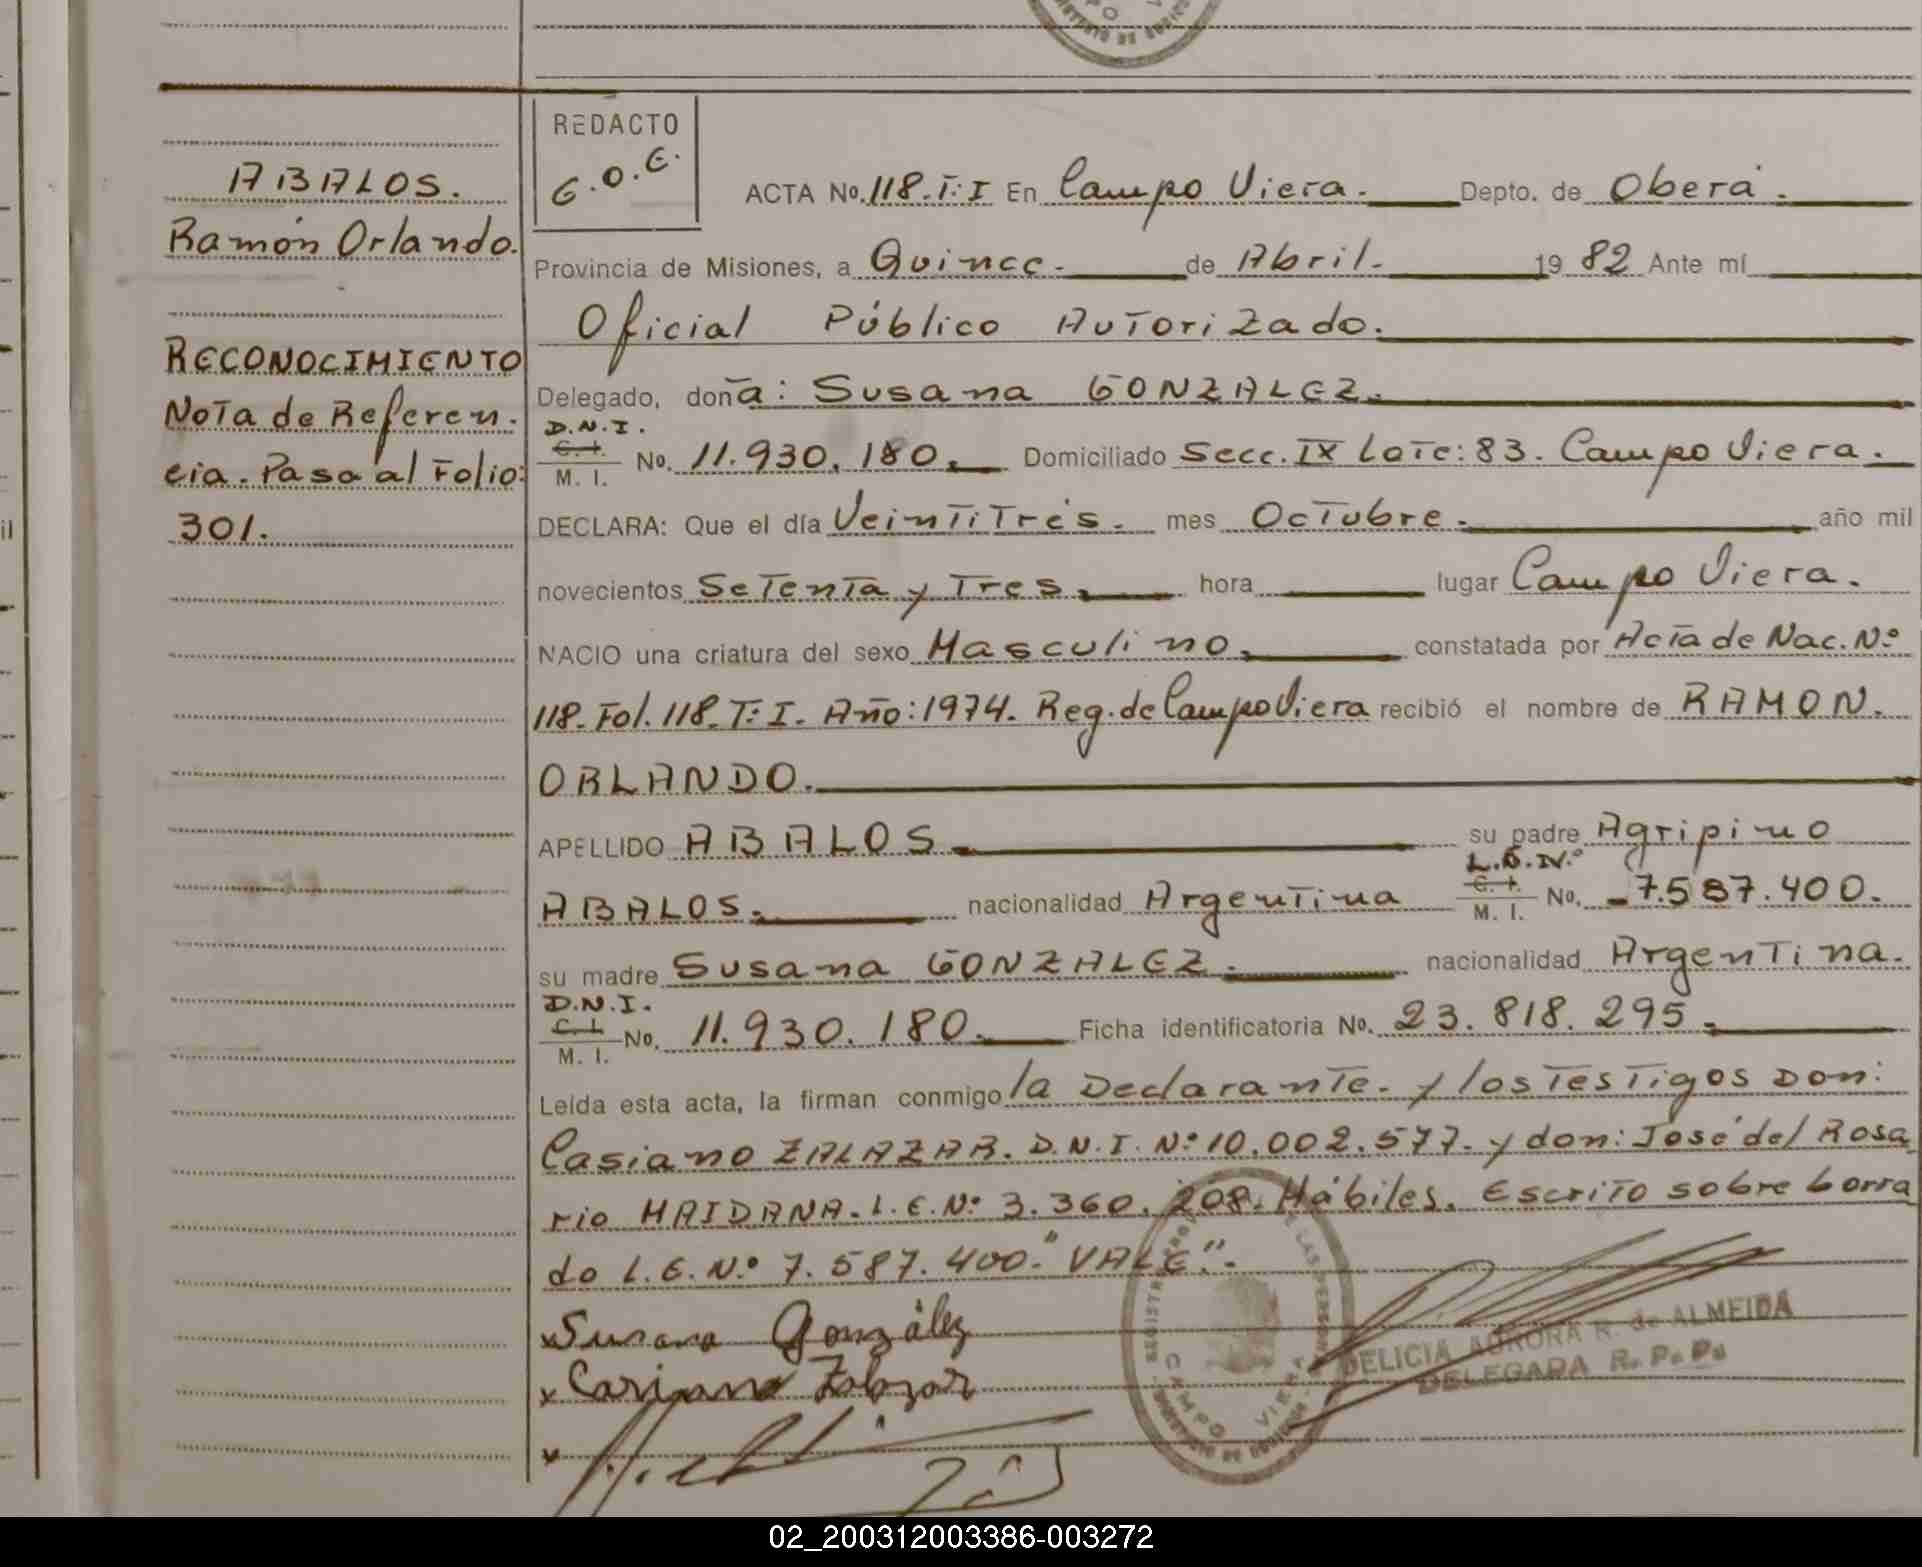 ABALOS.
Ramón Orlando.
RECONOCIMIENTO
Nota de Referen.
cia. Pasa al Folio:
301.
REDACTO
G.O.E.
ACTA No. 118. T:I En Campo Viera. Depto. de Oberá.
Provincia de Misiones, a Quince. de Abril. 19 82 Ante mí
Oficial Público Autorizado.
Delegado, doña: Susana GONZALEZ.
D.N.I.
C. I.
M. I.
No. 11.930.180. Domiciliado Secc. IX Lote: 83. Campo Viera.
DECLARA: Que el día Veintitrés. mes Octubre. año mil
novecientos Setenta y Tres. hora lugar Campo Viera.
NACIO una criatura del sexo Masculino. constatada por Acta de Nac. Nº
118. Fol. 118. T:I. Año: 1974. Reg. de Campo Viera recibió el nombre de RAMON.
ORLANDO.
APELLIDO ABALOS. su padre Agripino
L.E.Nº
ABALOS. nacionalidad Argentina C. I. M. I. No. 7.587.400.
su madre Susana GONZALEZ. nacionalidad Argentina.
D.N.I.
C. I.
M. I.
No. 11.930.180. Ficha identificatoria No. 23.818.295.
Leída esta acta, la firman conmigo la Declarante. y los Testigos Don:
Casiano ZALAZAR. D.N.I. Nº 10.002.577. y don: José del Rosa
rio MAIDANA. L.E.Nº 3.360.208. Hábiles. Escrito sobre borra
do L.E.Nº 7.587.400. "VALE".
x Susana González
x Casiano Zalazar
x
DELICIA AURORA R. de ALMEIDA
DELEGADA R. P. P.
CAMPO VIERA
02_200312003386-003272